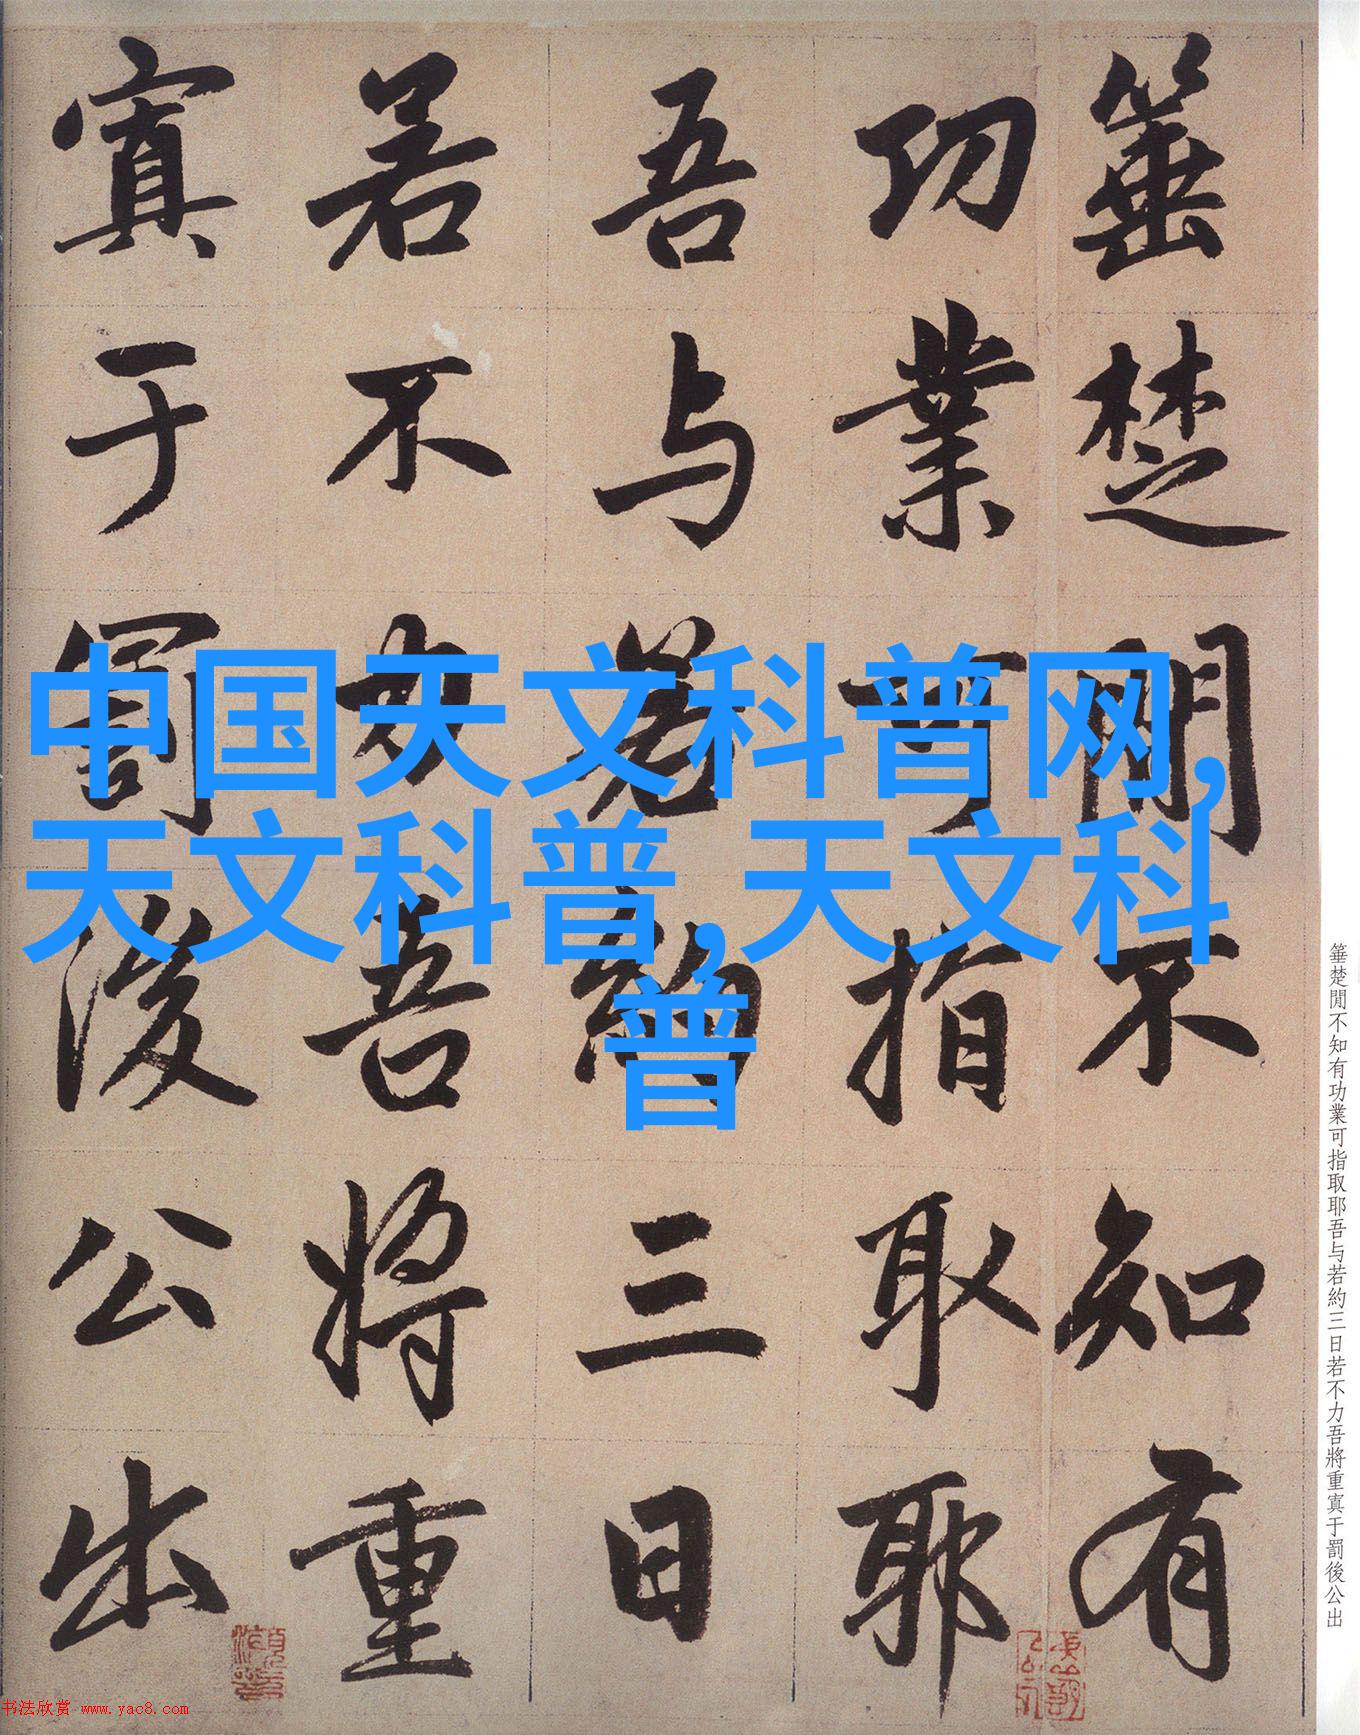 箠楚閒不知有
功業可指取耶
吾与若約三日
若不力吾將重
寘于罰後公出
中国天文科普网,
天文科普,天文科
普
箠楚閒不知有功業可指取耶吾与若約三日若不力吾將重寘于罰後公出
书法欣赏 www.yac8.com